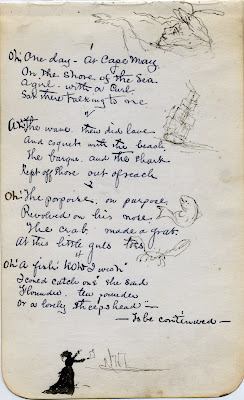 Oh! One day - At Cape May
On the Shore of the Sea
A girl - with a Curl
Sat there talking to me
Ah! The wave, then did lave
And coquet with the beach,
The barque, and the shark
Kept off shore out of reach
Oh! The porpoise, on purpose
Revolved on his nose,
The Crab, made a grab
At this little girls toes
Oh! A fish! How I wish
I could catch out the Sand
Flounder, ten pounder
Or a lovely Sheepshead -
- To be continued -